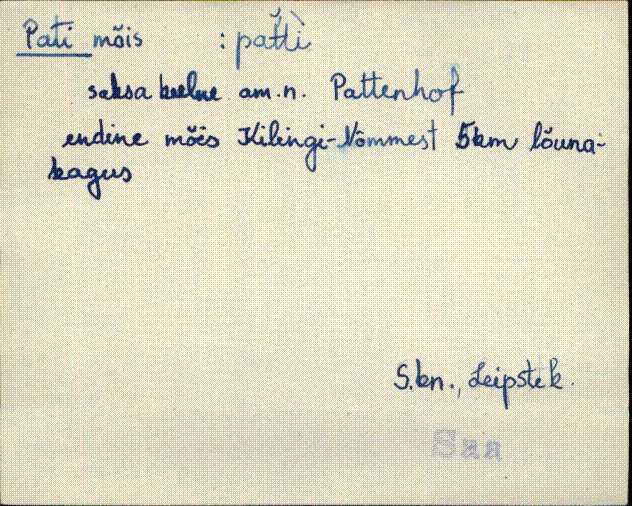 Pati mõis : pat̆ti̇̀
saksa keelne am.n. Pattenhof
endine mõis Kilingi-Nõmmest 5km lõuna-
kagus
S.kn., Leipstek.
Saa